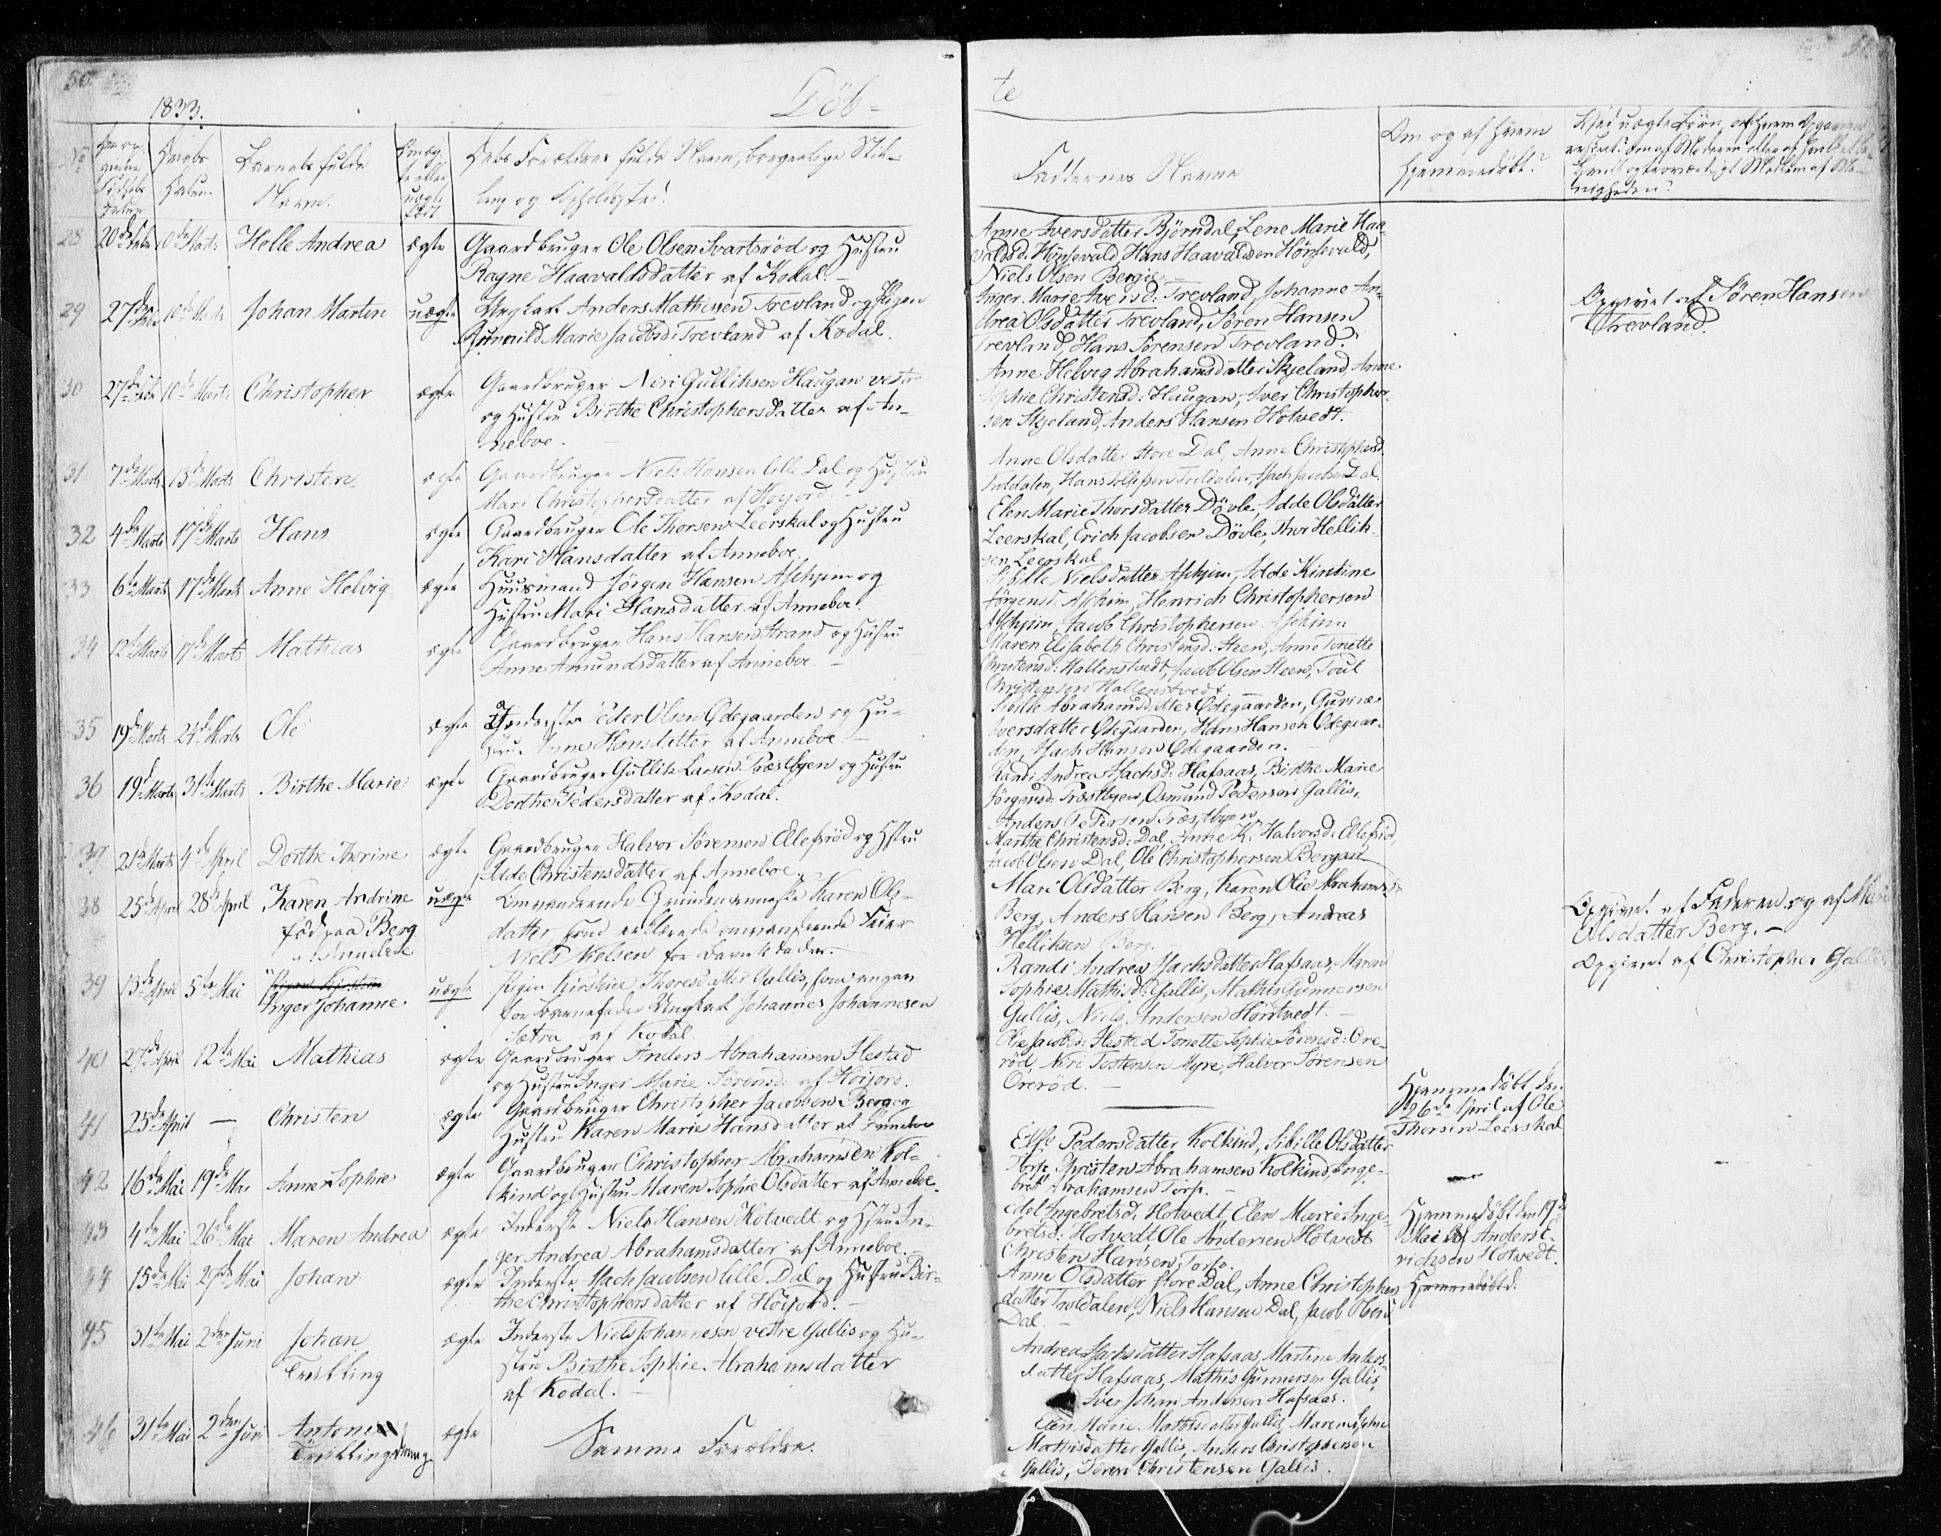 50
1833.
Döb-
te
No
Barnets fulde
Navn.
ægte eller
uægte
Dets Forældres fulde Navne, borgerlige Stil-
ling og Opholdssted.
Faddernes Navne
Om og af hvem
hjemmedöbt?
28 20de Febr 10de Marts Helle Andrea ægte Gaardbruger Ole Olsen Svartsrød og Hustru
Ragne Haavaldsdatter af Kodal.
Anne Iversdatter Bjørndal, Lene Marie Haa-
valdsd: Hønsevald, Hans Haavaldsen Hønsevald,
Niels Olsen Bergie
29 27de Febr 10de Marts Johan Martin uægte Ungkarl Anders Mathisen Trevland og Pigen
Gunnild Marie Jacobsd: Trevland af Kodal.
Inger Marie Iversd: Trevland, Johanne An-
drea Olsdatter Trevland, Søren Hansen
Trevland, Hans Sørensen Trevland.
Opgivet af Søren Hansen
Trevland.
30 27de Febr 10de Marts Christopher ægte Gaardbruger Niri Gulliksen Haugan vestre
og Hustru Birthe Christophersdatter af An-
neboe.
Anne Helvig Abrahamsdatter Skjeland, Anne
Sophie Christensd: Haugan, Iver Christopher-
sen Skjeland, Anders Hansen Hotvedt.
31 7de Marts 13de Marts Christen ægte Gaardbruger Niels Hansen lille Dal og Hustru
Mari Christophersdatter af Høijord.
Anne Olsdatter store Dal, Anne Christophersd:
Troldalen, Hans Troldalen, Isach Jacobsen Dal
32 4de Marts 17de Marts Hans ægte Gaardbruger Ole Thorsen Leerskal og Hustru
Kari Hansdatter af Anneboe.
Elen Marie Thorsdatter Døvle, Adde Olsdatter
Leerskal, Erich Jacobsen Døvle, Thor Hellik-
sen Leerskal
33 6te Marts 17de Marts Anne Helvig ægte Huusmand Jørgen Hansen Aschjem og
Hustru Mari Hansdatter af Anneboe.
Sibille Nielsdatter Aschjem, Adde Kirstine
Jørgensd: Aschim, Henrich Christophersen
Aschjem, Jacob Christophersen Aschim
34 12te Marts 17de Marts Mathias ægte Gaardbruger Hans Hansen Strand og Hustru
Anne Amundsdatter af Anneboe
Maren Elisabeth Christensd: Heen, Anne Tonette
Christensd: Hallenstvedt, Jacob Olsen Heen, Poul
Christensen Hallenstvedt
35 19de Marts 24de Marts Ole ægte Inderste Peder Olsen Ødegaarden og Hu-
stru Anne Hansdatter af Anneboe
Sibille Abrahamsdatter Ødegaarden, Guri
Iversdatter Ødegaarden, Hans Hansen Ødegaar-
den, Isach Hansen Ødegaarden.
36 19de Marts 31te Marts Birthe Marie ægte Gaardbruger Gullik Larsen Præstbyen og Hustru
Dorthe Pedersdatter af Kodal.
Randi Andrea Isachsd: Hafsaas, Birthe Marie
Jørgensd: Præstbyen, Osmund Pedersen Gallis,
Anders Pedersen Præstbyen
37 21de Marts 4de April Dorthe Therine ægte Gaardbruger Halvor Sørensen Ellefsrød og Hstru
Adde Christensdatter af Anneboe.
Marthe Christensd: Dal, Anne K. Halvorsd: Ellefsrød,
Jacob Olsen Dal, Ole Christophersen Bergan
38 25de April 28de April Karen Andrine
født paa Berg
i Anneboe
uægte Omvandrende Karen Ols-
datter omvandrende Feier
Niels Nielsen for Barnets Fader.
Mari Olsdatter Berg, Karen Olie Abrahamsd:
Berg, Anders Hansen Berg, Andreas
Helliksen Berg.
Opgivet af Faderen og af Mari
Olsdatter Berg.
39 13de April 5te Mai Inger Johanne uægte Pigen Kirstine Thoresdatter Gallis, som angav
for Barnefader Ungkarl Johannes Johannesen
Sætra af Kodal
Randi Andrea Isachsdatter Hafsaas, Maren
Sophie Mathisd: Gallis, Mathis Gunnersen
Gallis, Niels Andersen Høntvedt.
Opgivet af Christopher Gallis
40 27de April 12te Mai Mathias ægte Gaardbruger Anders Abrahamsen Hestad
og Hustru Inger Marie Sørensd: af Høijord.
Olie Jacobsd: Hestad, Tonette Sophie Sørensd: Ore-
rød, Niri Tostensen Myre, Halvor Sørensen
Orerød.
41 25de April — Christen ægte Gaardbruger Christopher Jacobsen Berg og
Hustru Karen Marie Hansdatter af Anneboe
Hjemmedöbt den
26de April af Ole
Thorsen Leerskal
42 16de Mai 19de Mai Anne Sophie ægte Gaardbruger Christopher Abrahamsen Kol-
kind og Hustru Maren Sophie Olsdatter af Anneboe.
Else Pedersdatter Kolkind, Sibille Olsdatter
Torp, Christen Abrahamsen Kolkind, Inge-
bret Abrahamsen Torp.
43 4de Mai 26de Mai Maren Andrea ægte Inderste Niels Hansen Hotvedt og Hstru In-
ger Andrea Abrahamsdatter af Anneboe.
Edel Ingebretsd: Hotvedt, Elen Marie Inge-
bretsd: Hotvedt, Ole Andersen Hotvedt
Christen Hansen Torp.
Hjemmedöbt den 19de
Mai af Anders E-
richsen Hotvedt.
44 15de Mai 27de Mai Johan ægte Inderste Isach Jacobsen lille Dal og Hustru Bir-
the Christophersdatter af Høijord.
Anne Olsdatter store Dal, Anne Christophers
datter Troldalen, Niels Hansen Dal, Jacob Olsen
Dal.
Hjemmedöbt.
45 31te Mai 2den Juni Johan
Trilling
ægte Inderste Niels Johannesen vestre Gallis og Hu-
stru Birthe Sophie Abrahamsdatter
af Kodal.
Andrea Isachsdatter Hafsaas, Martine Anders-
datter Hafsaas, Mathis Gunnersen Gallis,
Iver Johan Andersen Hafsaas.
46 31te Mai 2den Juni Anton
ægte Samme Forældre.
Elen Marie Mathisdatter Gallis, Maren Sophie
Mathisdatter Gallis, Anders Christophersen
Gallis, Søren Christensen Gallis.